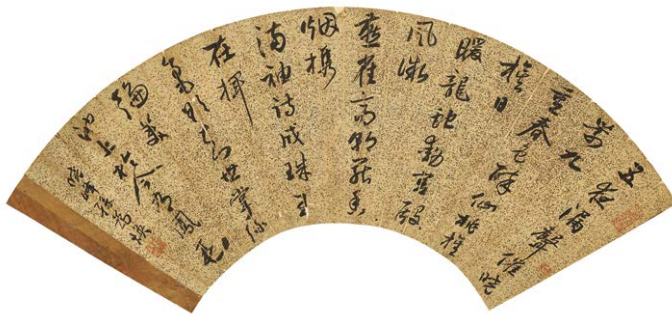 五夜漏聲催曉
箭九
重春色醉仙桃旌
旂日
暖龍蛇動宮殿
風微
燕雀高朝罷香
烟攜
滿袖詩成珠玉
在揮
毫欲知世掌絲
綸美
池上於今有鳳毛